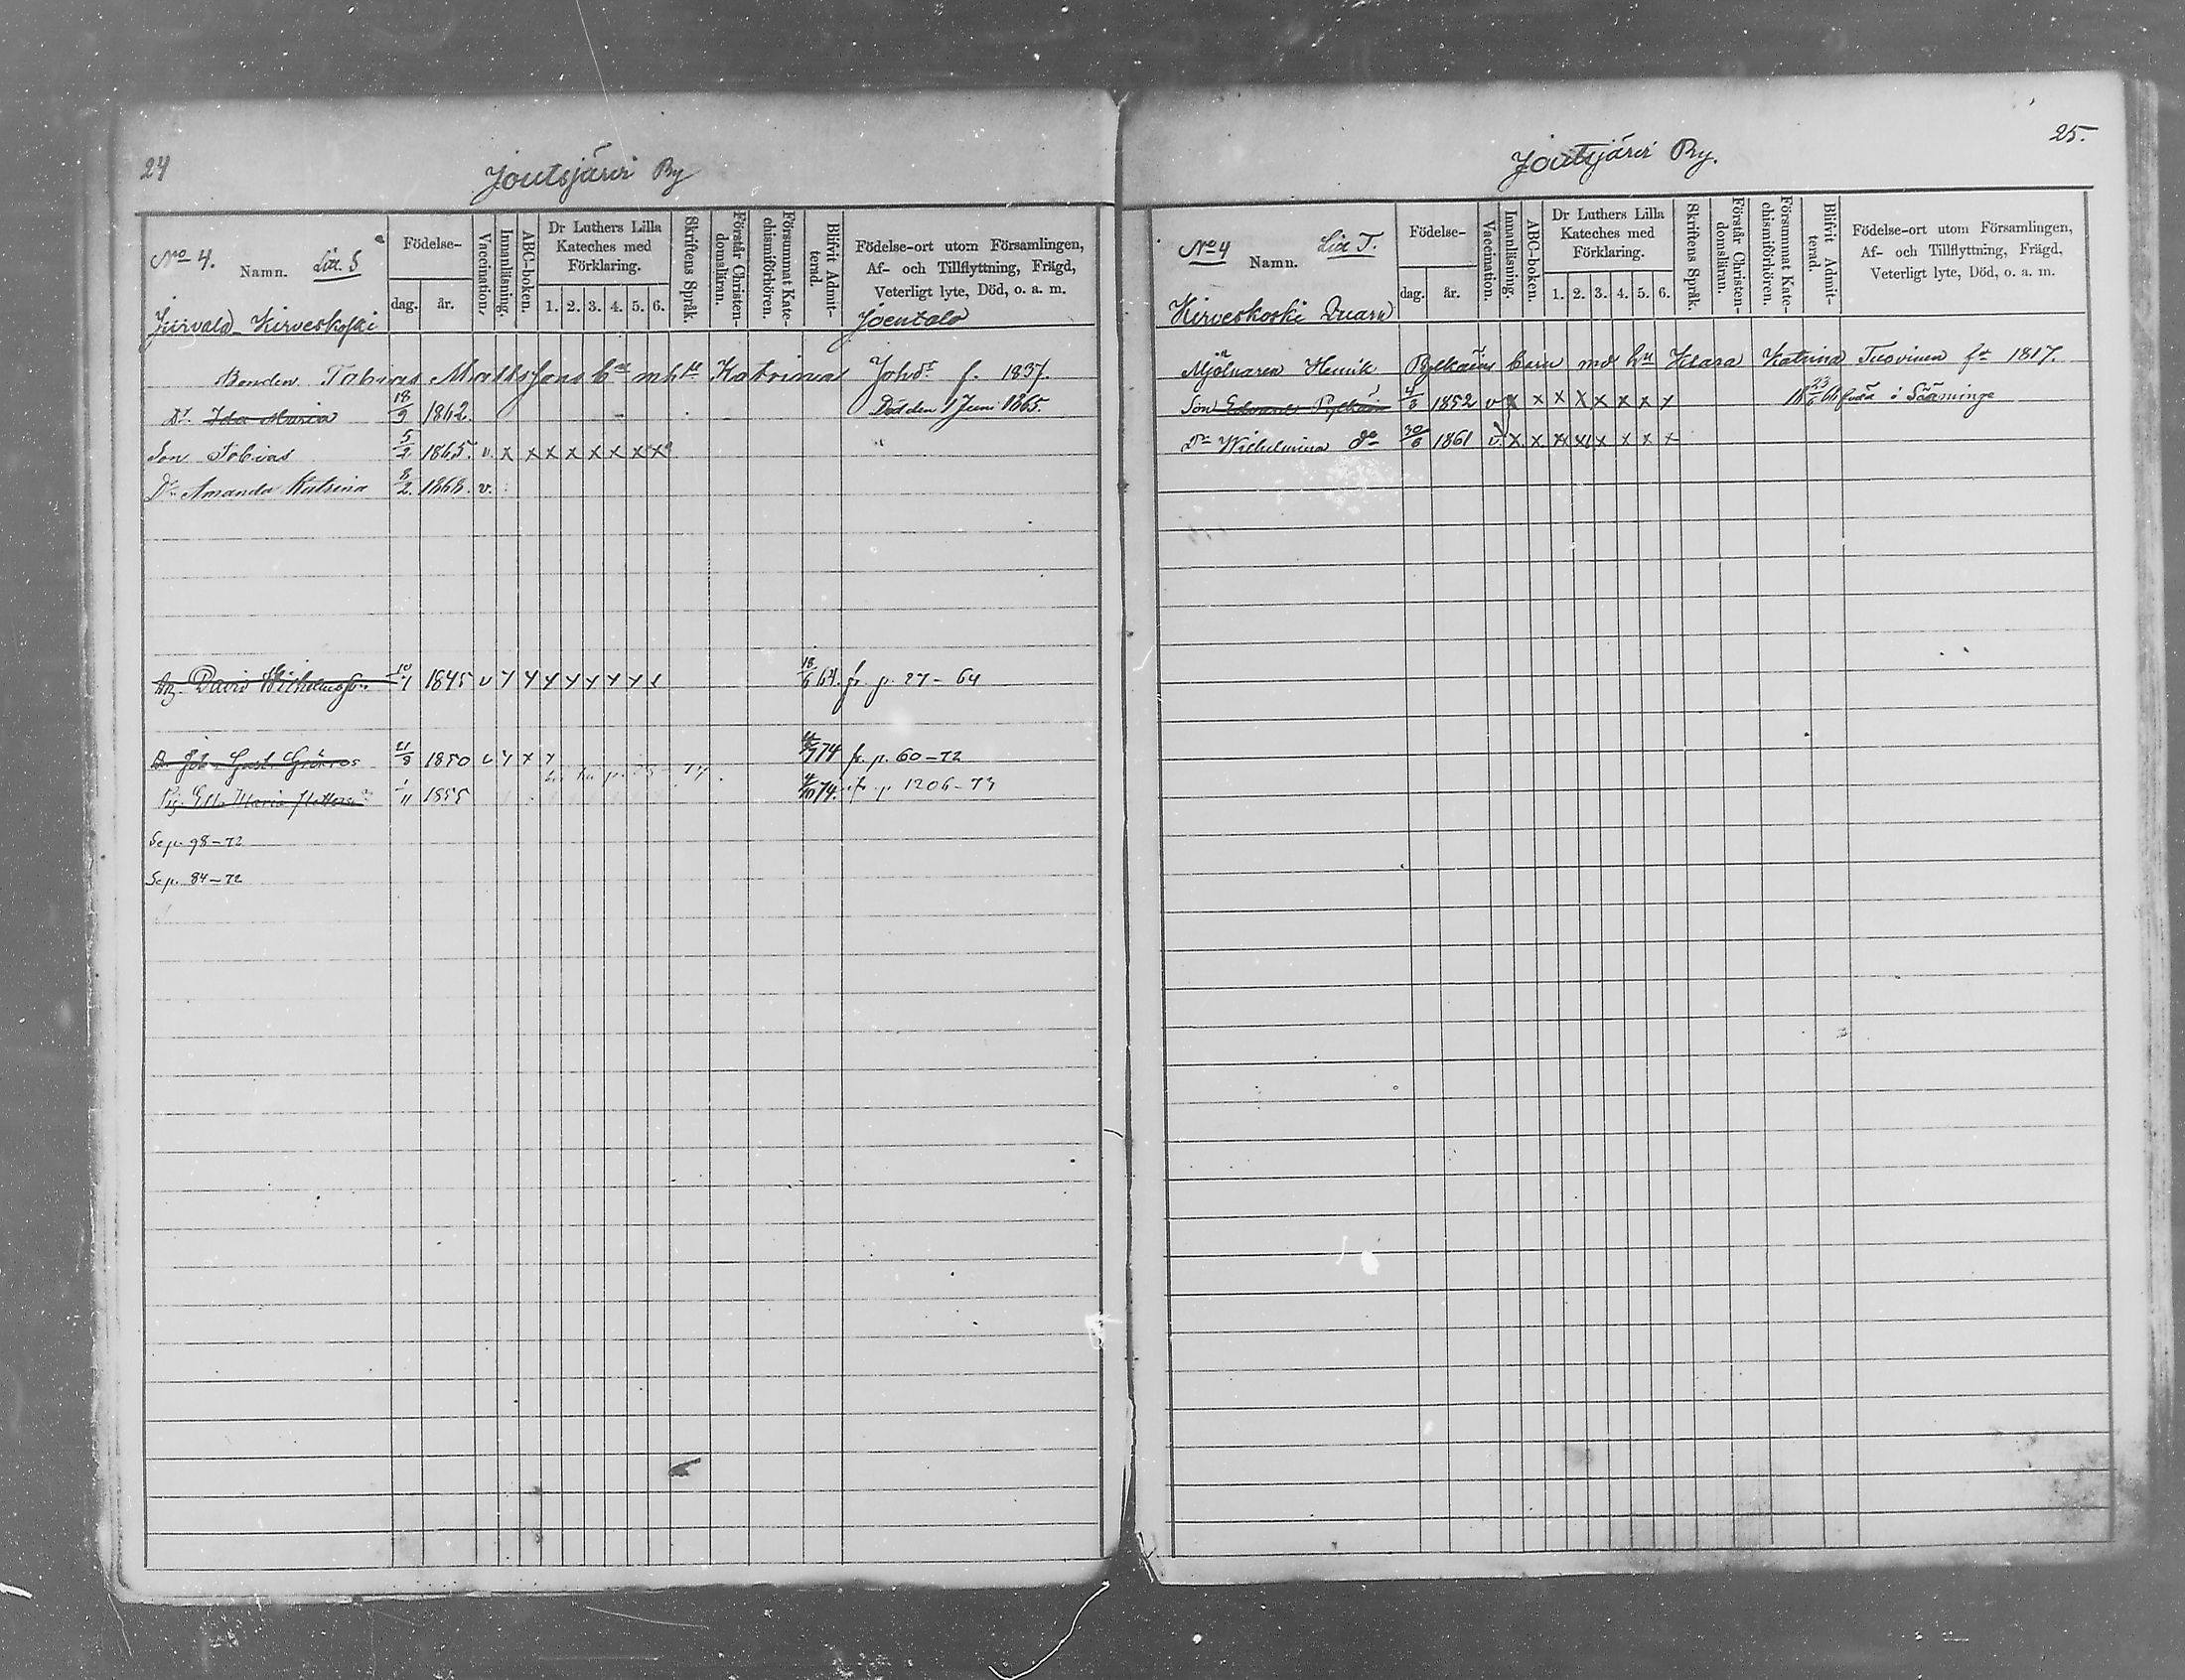 24
Joutsjärvi By
No 4. Namn. Litt. S
Födelse-
dag. år.
Vaccination.
Innanläsning.
ABC-boken.
Dr Luthers Lilla Kateches med Förklaring.
1. 2. 3. 4. 5. 6.
Skriftens Språk.
Förstår Christen-domsläran.
Försummat Kate-chismiförhören.
Blifvit Admit-terad.
Födelse-ort utom Församlingen,
Af- och Tillflyttning, Frägd,
Veterligt lyte, Död, o. a. m.
Kirveskoski
Bonden Tobias Matts Sons bn m h h Katrina Johdr f. 1837.
Dr. Ida Maria 18/9 1862. Död den 1 Juni 1865.
Son Tobias 5/2 1865. v. x x x x x x x x
Dr. Amanda Katrina 8/2. 1868. v.
David Wilhelmsson 10/7 1845 v y y y y y y y 18/6 64. fr. p. 27 - 64
Joh. Gust. Grönros 21/8 1850 v y x y 74 fr. p. 60-72
Pig. Maria 1/11 1855 74. fr p 1206-73
Se p. 98-72
Se p. 84-72
25.
Joutsjärvi By.
No 4 Namn. Litt T.
Födelse-
dag. år.
Vaccination.
Innanläsning.
ABC-boken.
Dr Luthers Lilla Kateches med Förklaring.
1. 2. 3. 4. 5. 6.
Skriftens Språk.
Förstår Christen-domsläran.
Försummat Kate-chismiförhören.
Blifvit Admit-terad.
Födelse-ort utom Församlingen,
Af- och Tillflyttning, Frägd,
Veterligt lyte, Död, o. a. m.
Kirveskoski Quarn
Mjölnaren Henrik Pylkäins barn md hu Klara Katrina Tuovinen fr 1817.
Son Edvard Pylkäin 1852 v x x x x x x x x 18 23/6 66 född i Sääminge
Dr Wilhelmina do 30/6 1861 v. x x x x x x x x